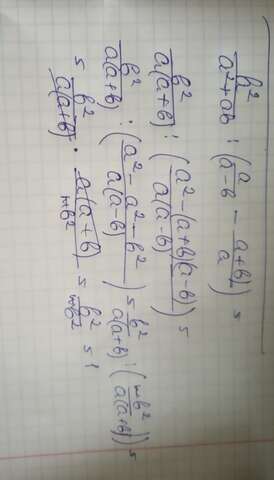 b²/(a²+ab) : (a/(a-b) - (a+b)/a) =
b²/(a(a+b)) : ((a²-(a+b)(a-b))/(a(a-b))) =
b²/(a(a+b)) : ((a²-a²-b²)/(a(a-b))) = b²/(a(a+b)) : (b²/(a(a+b))) =
= b²/(a(a+b)) · (a(a+b))/b² = b²/b² = 1